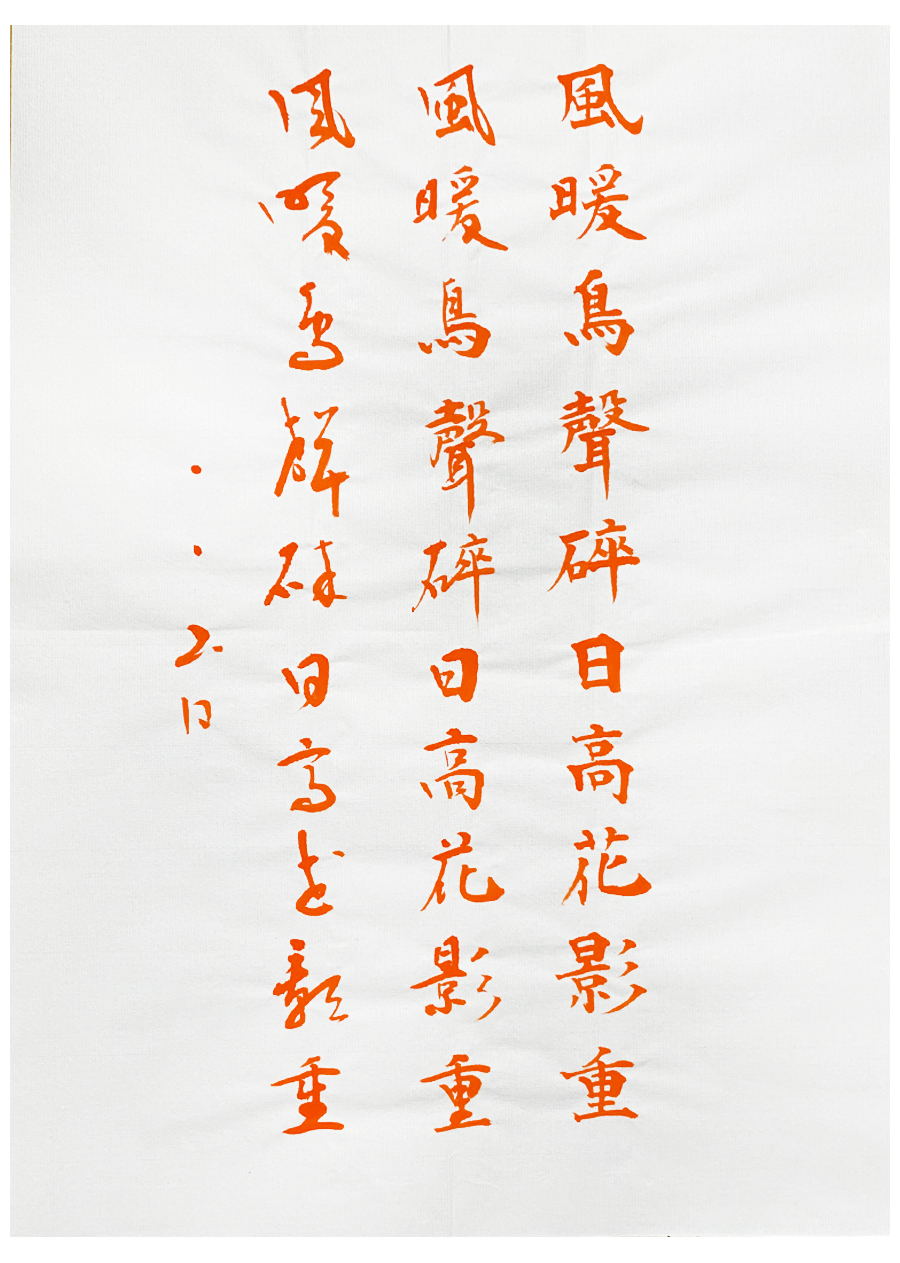 風暖鳥聲碎日高花影重
風暖鳥聲碎日高花影重
風暖鳥聲碎日高花影重
日